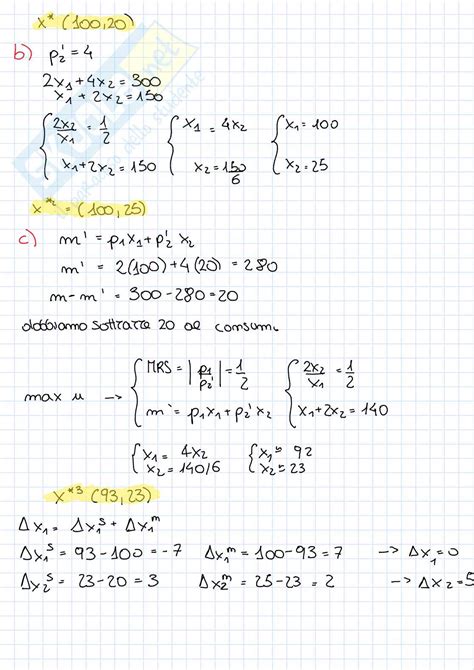 x* (100,20)
b) p₂' = 4
2x₁ + 4x₂ = 300
x₁ + 2x₂ = 150
{ 2x₂/x₁ = 1/2 { x₁ = 4x₂ { x₁ = 100
x₁ + 2x₂ = 150 x₂ = 150/6 x₂ = 25
x*² = (100,25)
c) m' = p₁x₁ + p₂' x₂
m' = 2(100) + 4(20) = 280
m - m' = 300 - 280 = 20
dobbiamo sottrarre 20 al consum.
max u → { MRS = |p₁/p₂'| = 1/2 { 2x₂/x₁ = 1/2
m' = p₁x₁ + p₂' x₂ x₁ + 2x₂ = 140
{ x₁ = 4x₂ { x₁ = 92
x₂ = 140/6 x₂ = 23
x*³ (93,23)
Δx₁ = Δx₁ˢ + Δx₁ᵐ
Δx₁ˢ = 93 - 100 = -7 Δx₁ᵐ = 100 - 93 = 7 → Δx₁ = 0
Δx₂ˢ = 23 - 20 = 3 Δx₂ᵐ = 25 - 23 = 2 → Δx₂ = 5